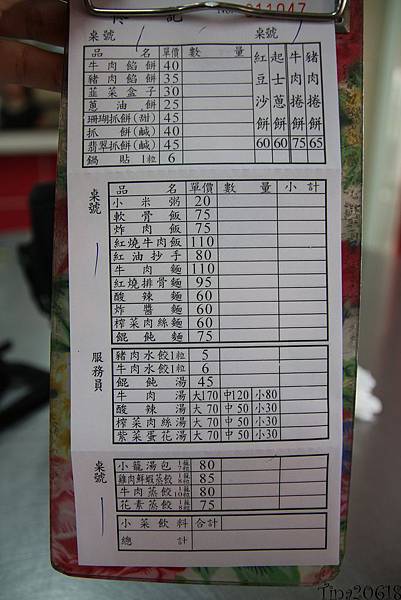 記 No. 011047
桌號 桌號
品名 單價 數量
牛肉餡餅 40
豬肉餡餅 35
韮菜盒子 30
蔥油餅 25
珊瑚抓餅(甜) 45
抓餅(鹹) 40
翡翠抓餅(鹹) 45
鍋貼1粒 6
紅豆沙餅 60
起士蔥餅 60
牛肉捲餅 75
豬肉捲餅 65
桌號
品名 單價 數量 小計
小米粥 20
軟骨飯 75
炸肉飯 75
紅燒牛肉飯 110
紅油抄手 80
牛肉麵 110
紅燒排骨麵 95
酸辣麵 60
炸醬麵 60
榨菜肉絲麵 60
餛飩麵 75
服務員
豬肉水餃1粒 5
牛肉水餃1粒 6
餛飩湯 45
牛肉湯 大170 中120 小80
酸辣湯 大70 中50 小30
榨菜肉絲湯 大70 中50 小30
紫菜蛋花湯 大70 中50 小30
桌號
小籠湯包 80
雞肉鮮蝦蒸餃 85
牛肉蒸餃 80
花素蒸餃 75
小菜飲料 合計
總計
Tina20618